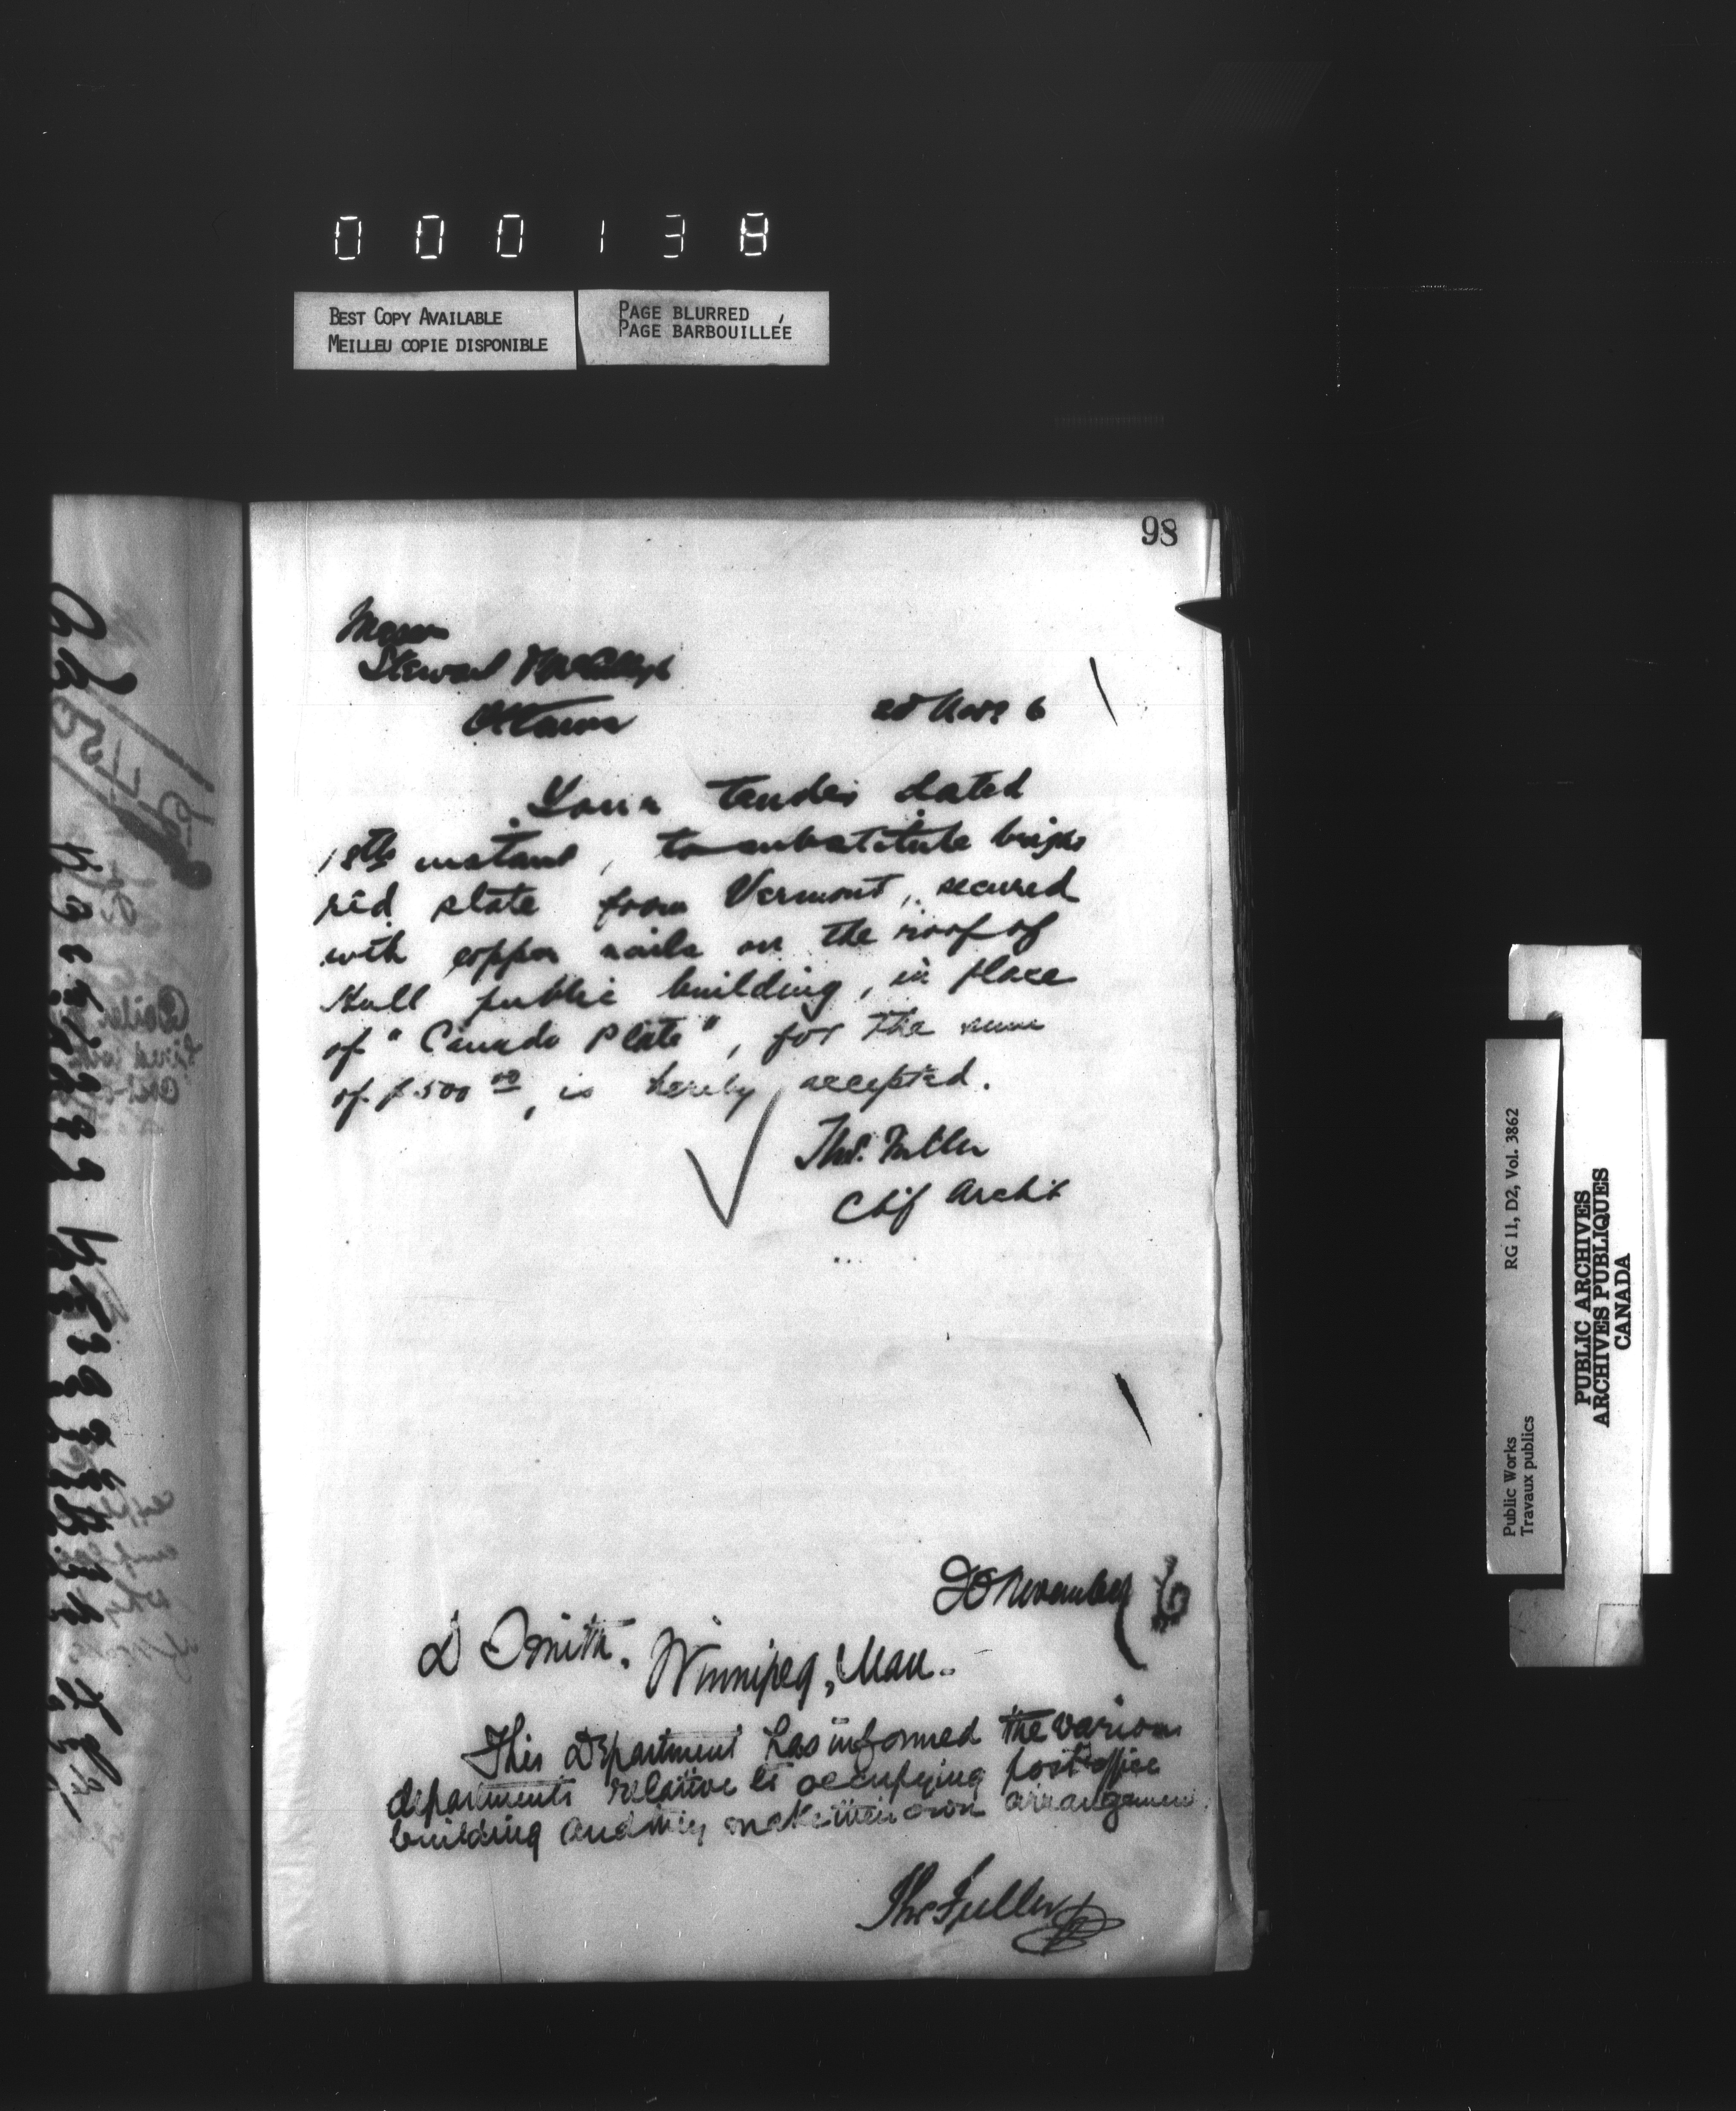 000138
BEST COPY AVAILABLE
MEILLEU COPIE DISPONIBLE
PAGE BLURRED
PAGE BARBOUILLÉE
98
Messrs
Stewart
Ottawa
20 Nov 6
Your tender dated
18th instant, to substitute bright
red slate from Vermont, secured
with copper nails on the roof of
Hull public building, in place
of "Canada Plate", for the sum
of $500 00, is hereby accepted.
Thos. Fuller
Chf Archt
20 November 6
D Smith, Winnipeg, Man.
This Department has informed the various
departments relative to occupying post office
building and they make their own arrangement
Thos Fuller
Public Works
Travaux publics
RG 11, D2, Vol. 3862
PUBLIC ARCHIVES
ARCHIVES PUBLIQUES
CANADA